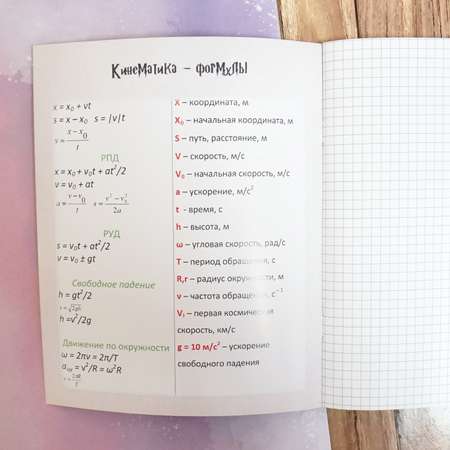 Кинематика – формулы
x = x₀ + vt
s = x – x₀   s = |v|t
v = (x – x₀)/t
РПД
x = x₀ + v₀t + at²/2
v = v₀ + at
a = (v – v₀)/t   s = (v² – v₀²)/2a
РУД
s = v₀t + at²/2
v = v₀ ± gt
Свободное падение
h = gt²/2
v = √2gh
h = v²/2g
Движение по окружности
ω = 2πν = 2π/T
= v²/R = ω²R
v = 2πR/T
X – координата, м
X₀ – начальная координата, м
S – путь, расстояние, м
V – скорость, м/с
V₀ – начальная скорость, м/с
a – ускорение, м/с²
t - время, с
h – высота, м
ω – угловая скорость, рад/с
T – период обращения, с
R,r – радиус окружности, м
ν – частота обращения, с⁻¹
– первая космическая
скорость, км/с
g = 10 м/с² – ускорение
свободного падения